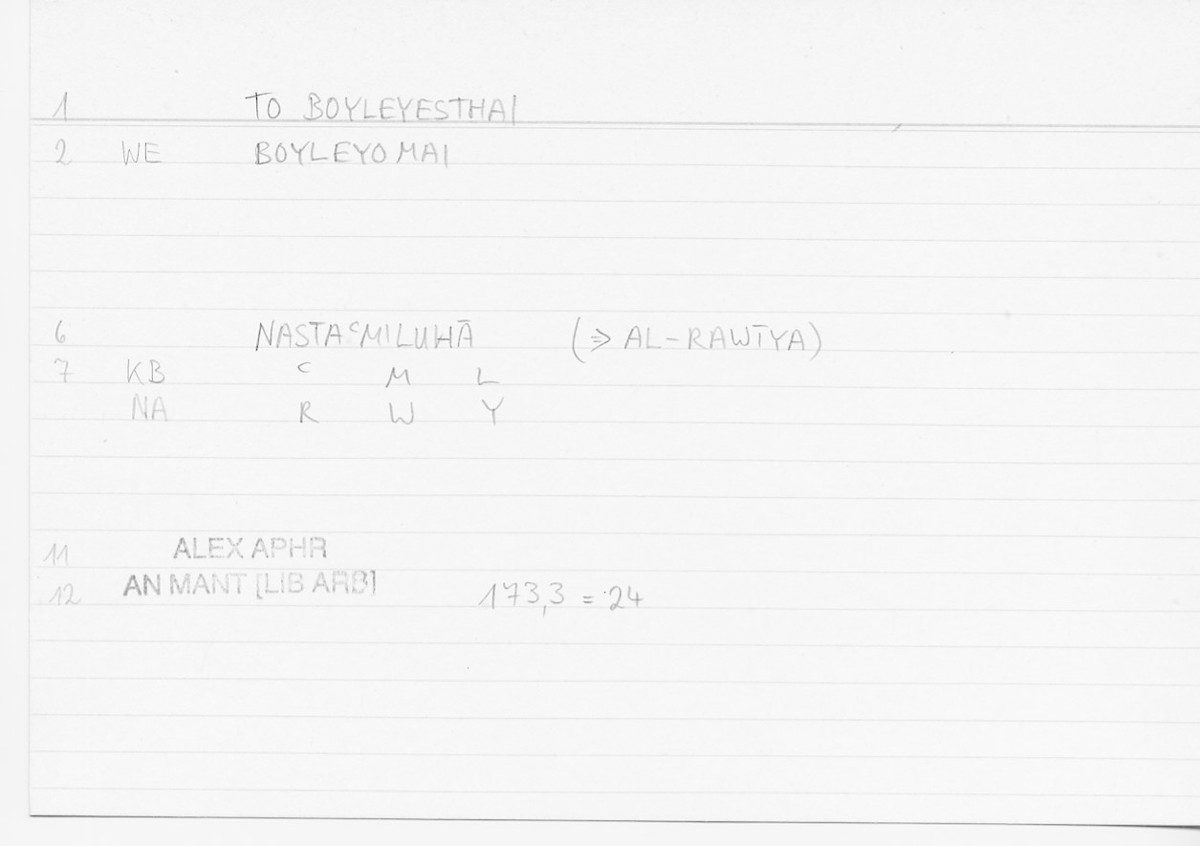 1 TO BOYLEYESTHAI
2 WE BOYLEYOMAI
6 NASTAʿMILUHĀ (⇒ AL-RAWĪYA)
7 KB ʿ M L
NA R W Y
11 ALEX APHR
12 AN MANT [LIB ARB] 173,3 = 24